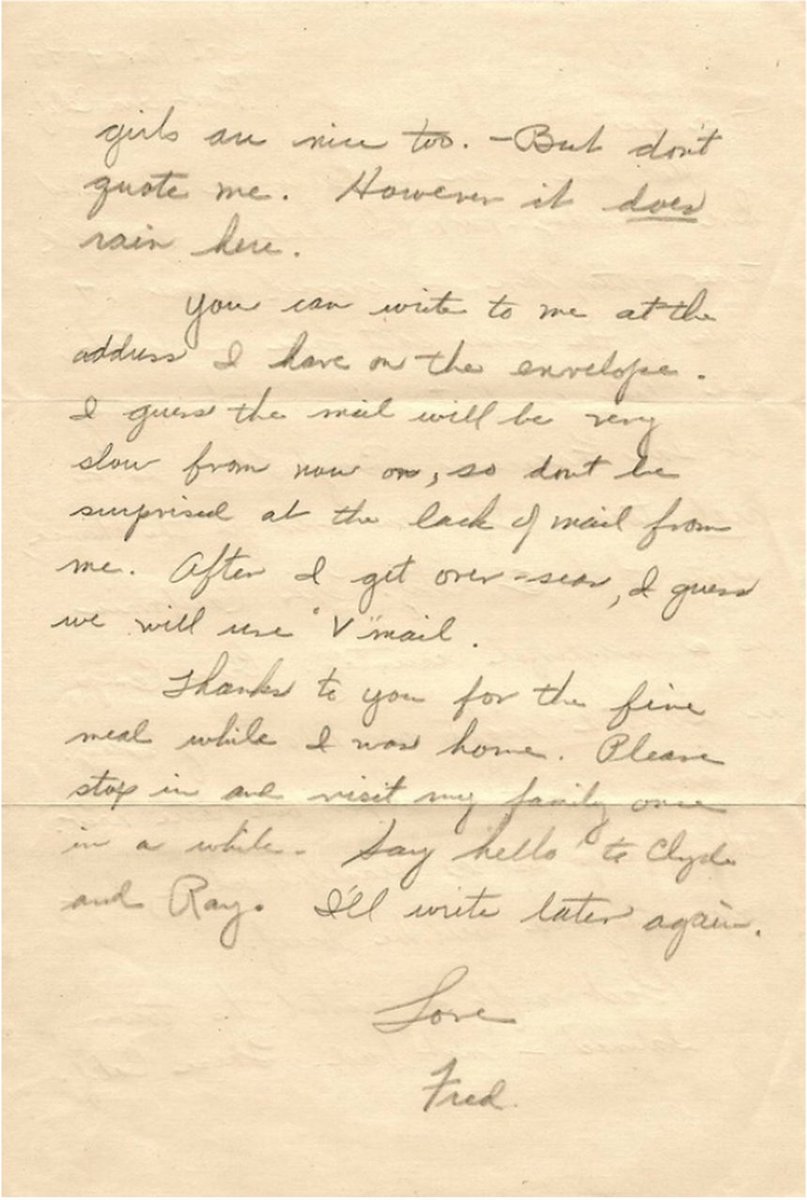 girls are nice too. - But don't
quote me. However it does
rain here.
You can write to me at the
address I have on the envelope.
I guess the mail will be very
slow from now on, so dont be
surprised at the lack of mail from
me. After I get over-seas, I guess
we will use "V" mail.
Thanks to you for the fine
meal while I was home. Please
stop in and visit my family once
in a while. Say hello to Clyde
and Ray. I'll write later again.
Love
Fred.